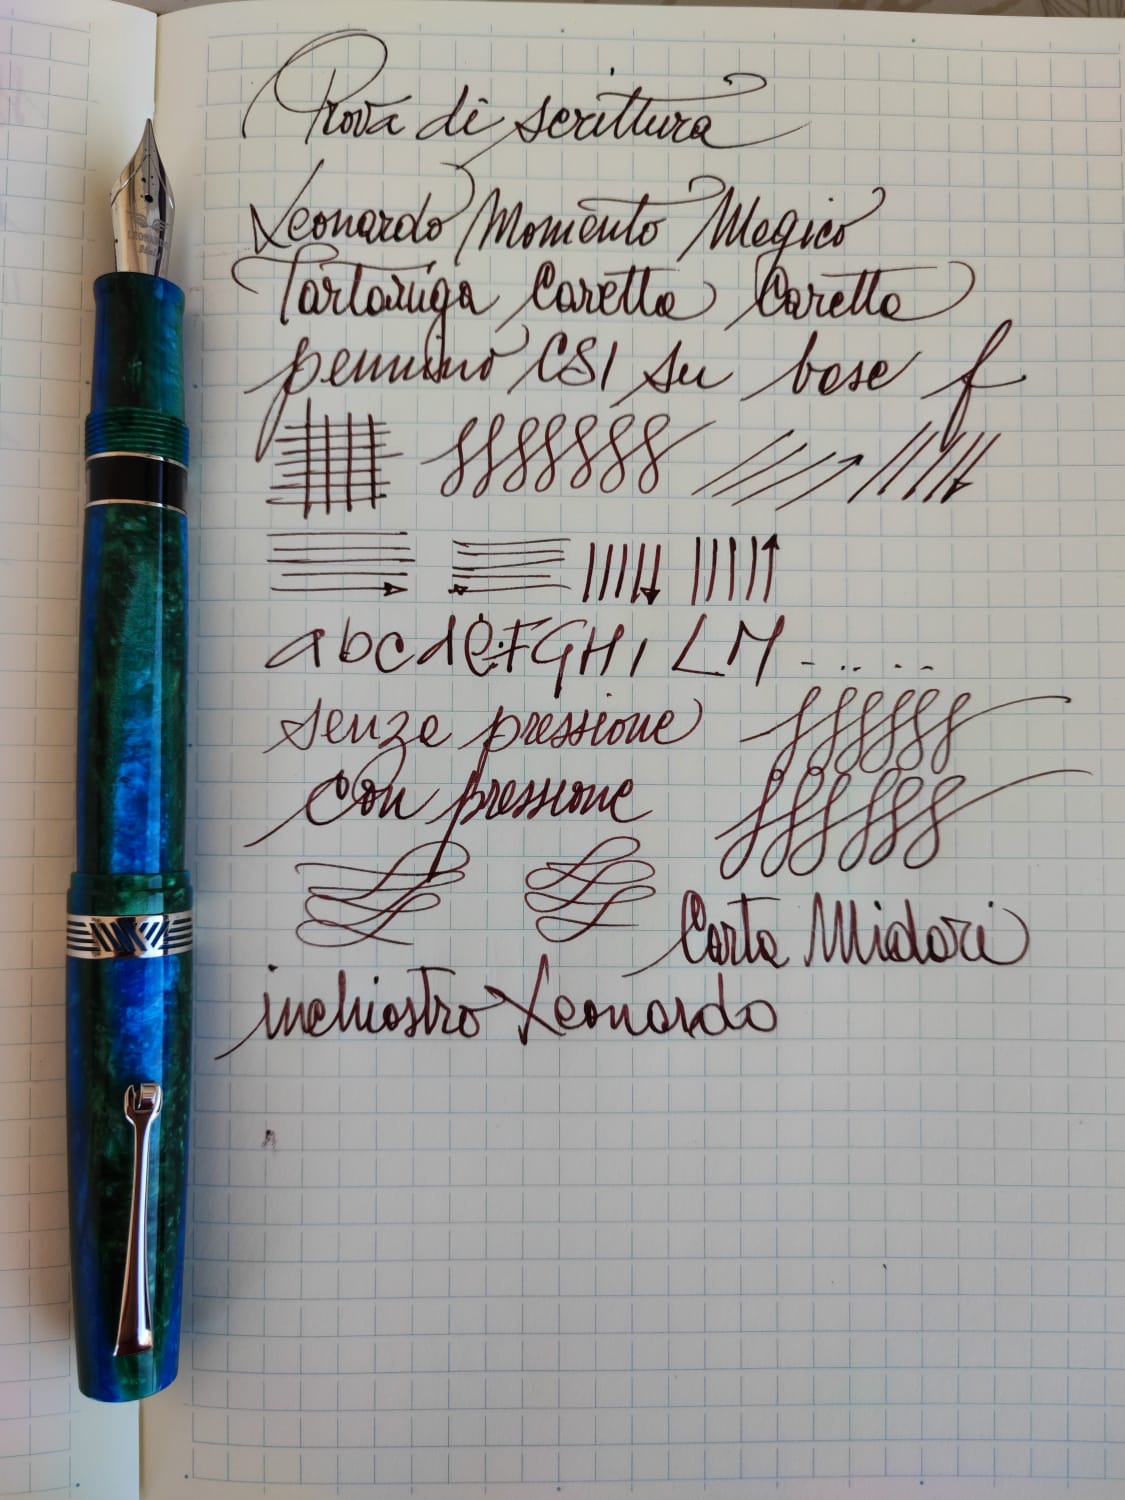 Prova di scrittura
Leonardo Momento Magico
Tartaruga Caretta Caretta
pennino CSI su base f
abcdeFGHI LM - .. . . -
senza pressione
con pressione
Carta Midori
inchiostro Leonardo